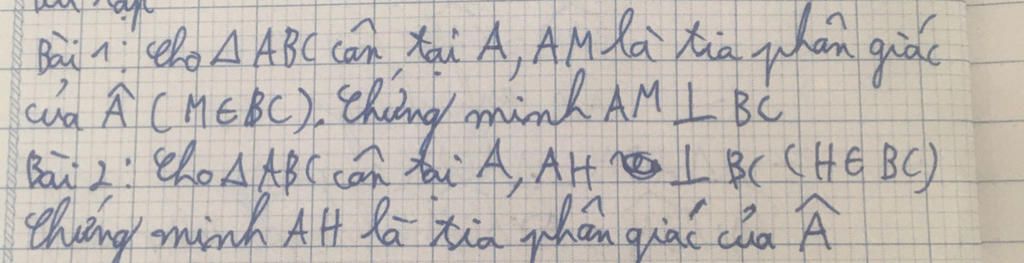 Bài 1: Cho Δ ABC cân tại A, AM là tia phân giác
của Â (M∈BC). Chứng minh AM ⊥ BC
Bài 2: Cho Δ ABC cân tại A, AH ⊥ BC (H∈BC)
Chứng minh AH là tia phân giác của Â